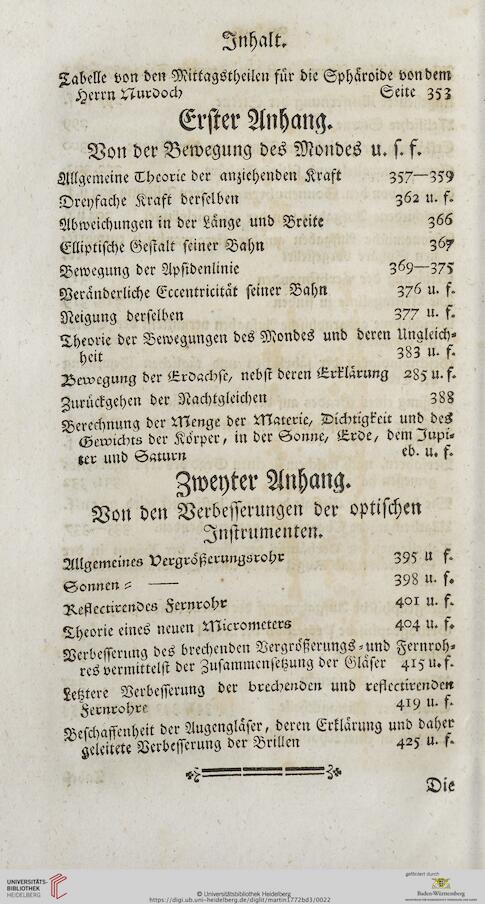 Inhalt.
Tabelle von den Mittagstheilen für die Sphäroide von dem
Herrn Nurdoch Seite 353
Erster Anhang.
Von der Bewegung des Mondes u. s. f.
Allgemeine Theorie der anziehenden Kraft 357—359
Dreyfache Kraft derselben 362 u. f.
Abweichungen in der Länge und Breite 366
Elliptische Gestalt seiner Bahn 367
Bewegung der Apsidenlinie 369—375
Veränderliche Eccentricität seiner Bahn 376 u. f.
Neigung derselben 377 u. f.
Theorie der Bewegungen des Mondes und deren Ungleich-
heit 383 u. f.
Bewegung der Erdachse, nebst deren Erklärung 285 u. f.
Zurückgehen der Nachtgleichen 388
Berechnung der Menge der Materie, Dichtigkeit und des
Gewichts der Körper, in der Sonne, Erde, dem Jupi-
ter und Saturn eb. u. f.
Zweyter Anhang.
Von den Verbesserungen der optischen
Instrumenten.
Allgemeines Vergrößerungsrohr 395 u f.
Sonnen- —— 398 u. f.
Reflectirendes Fernrohr 401 u. f.
Theorie eines neuen Micrometers 404 u. f.
Verbesserung des brechenden Vergrößerungs- und Fernroh-
res vermittelst der Zusammensetzung der Gläser 415 u. f.
Letztere Verbesserung der brechenden und reflectirenden
Fernrohre 419 u. f.
Beschaffenheit der Augengläser, deren Erklärung und daher
geleitete Verbesserung der Brillen 425 u. f.
Die
UNIVERSITÄTS-
BIBLIOTHEK
HEIDELBERG
© Universitätsbibliothek Heidelberg
https://digi.ub.uni-heidelberg.de/diglit/martin1772bd3/0022
gefördert durch
Baden-Württemberg